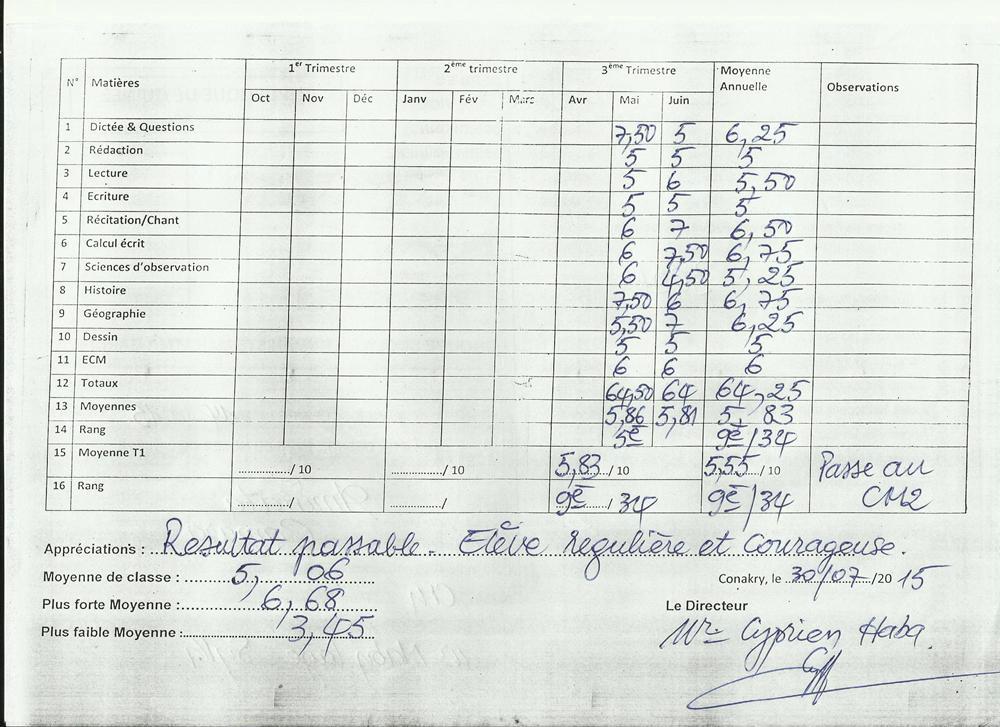 N° Matières 1er Trimestre 2ème trimestre 3ème Trimestre Moyenne Annuelle Observations
Oct Nov Déc Janv Fév Mars Avr Mai Juin
1 Dictée & Questions 7,50 5 6,25
2 Rédaction 5 5 5
3 Lecture 5 6 5,50
4 Ecriture 5 5 5
5 Récitation/Chant 6 7 6,50
6 Calcul écrit 6 7,50 6,75
7 Sciences d'observation 6 4,50 5,25
8 Histoire 7,50 6 6,75
9 Géographie 5,50 7 6,25
10 Dessin 5 5 5
11 ECM 6 6 6
12 Totaux 64,50 64 64,25
13 Moyennes 5,86 5,81 5,83
14 Rang 5e 9e/34
15 Moyenne T1 ............/ 10 ............/ 10 5,83/ 10 5,55/ 10 Passe au
16 Rang ............/ ............/ 9e/ 34 9e/34 CM2
Appréciations : Resultat passable. Elève regulière et courageuse.
Moyenne de classe : 5,06 Conakry, le 30/07/2015
Plus forte Moyenne : 6,68 Le Directeur
Plus faible Moyenne : 3,45 Mr Cyprien Haba